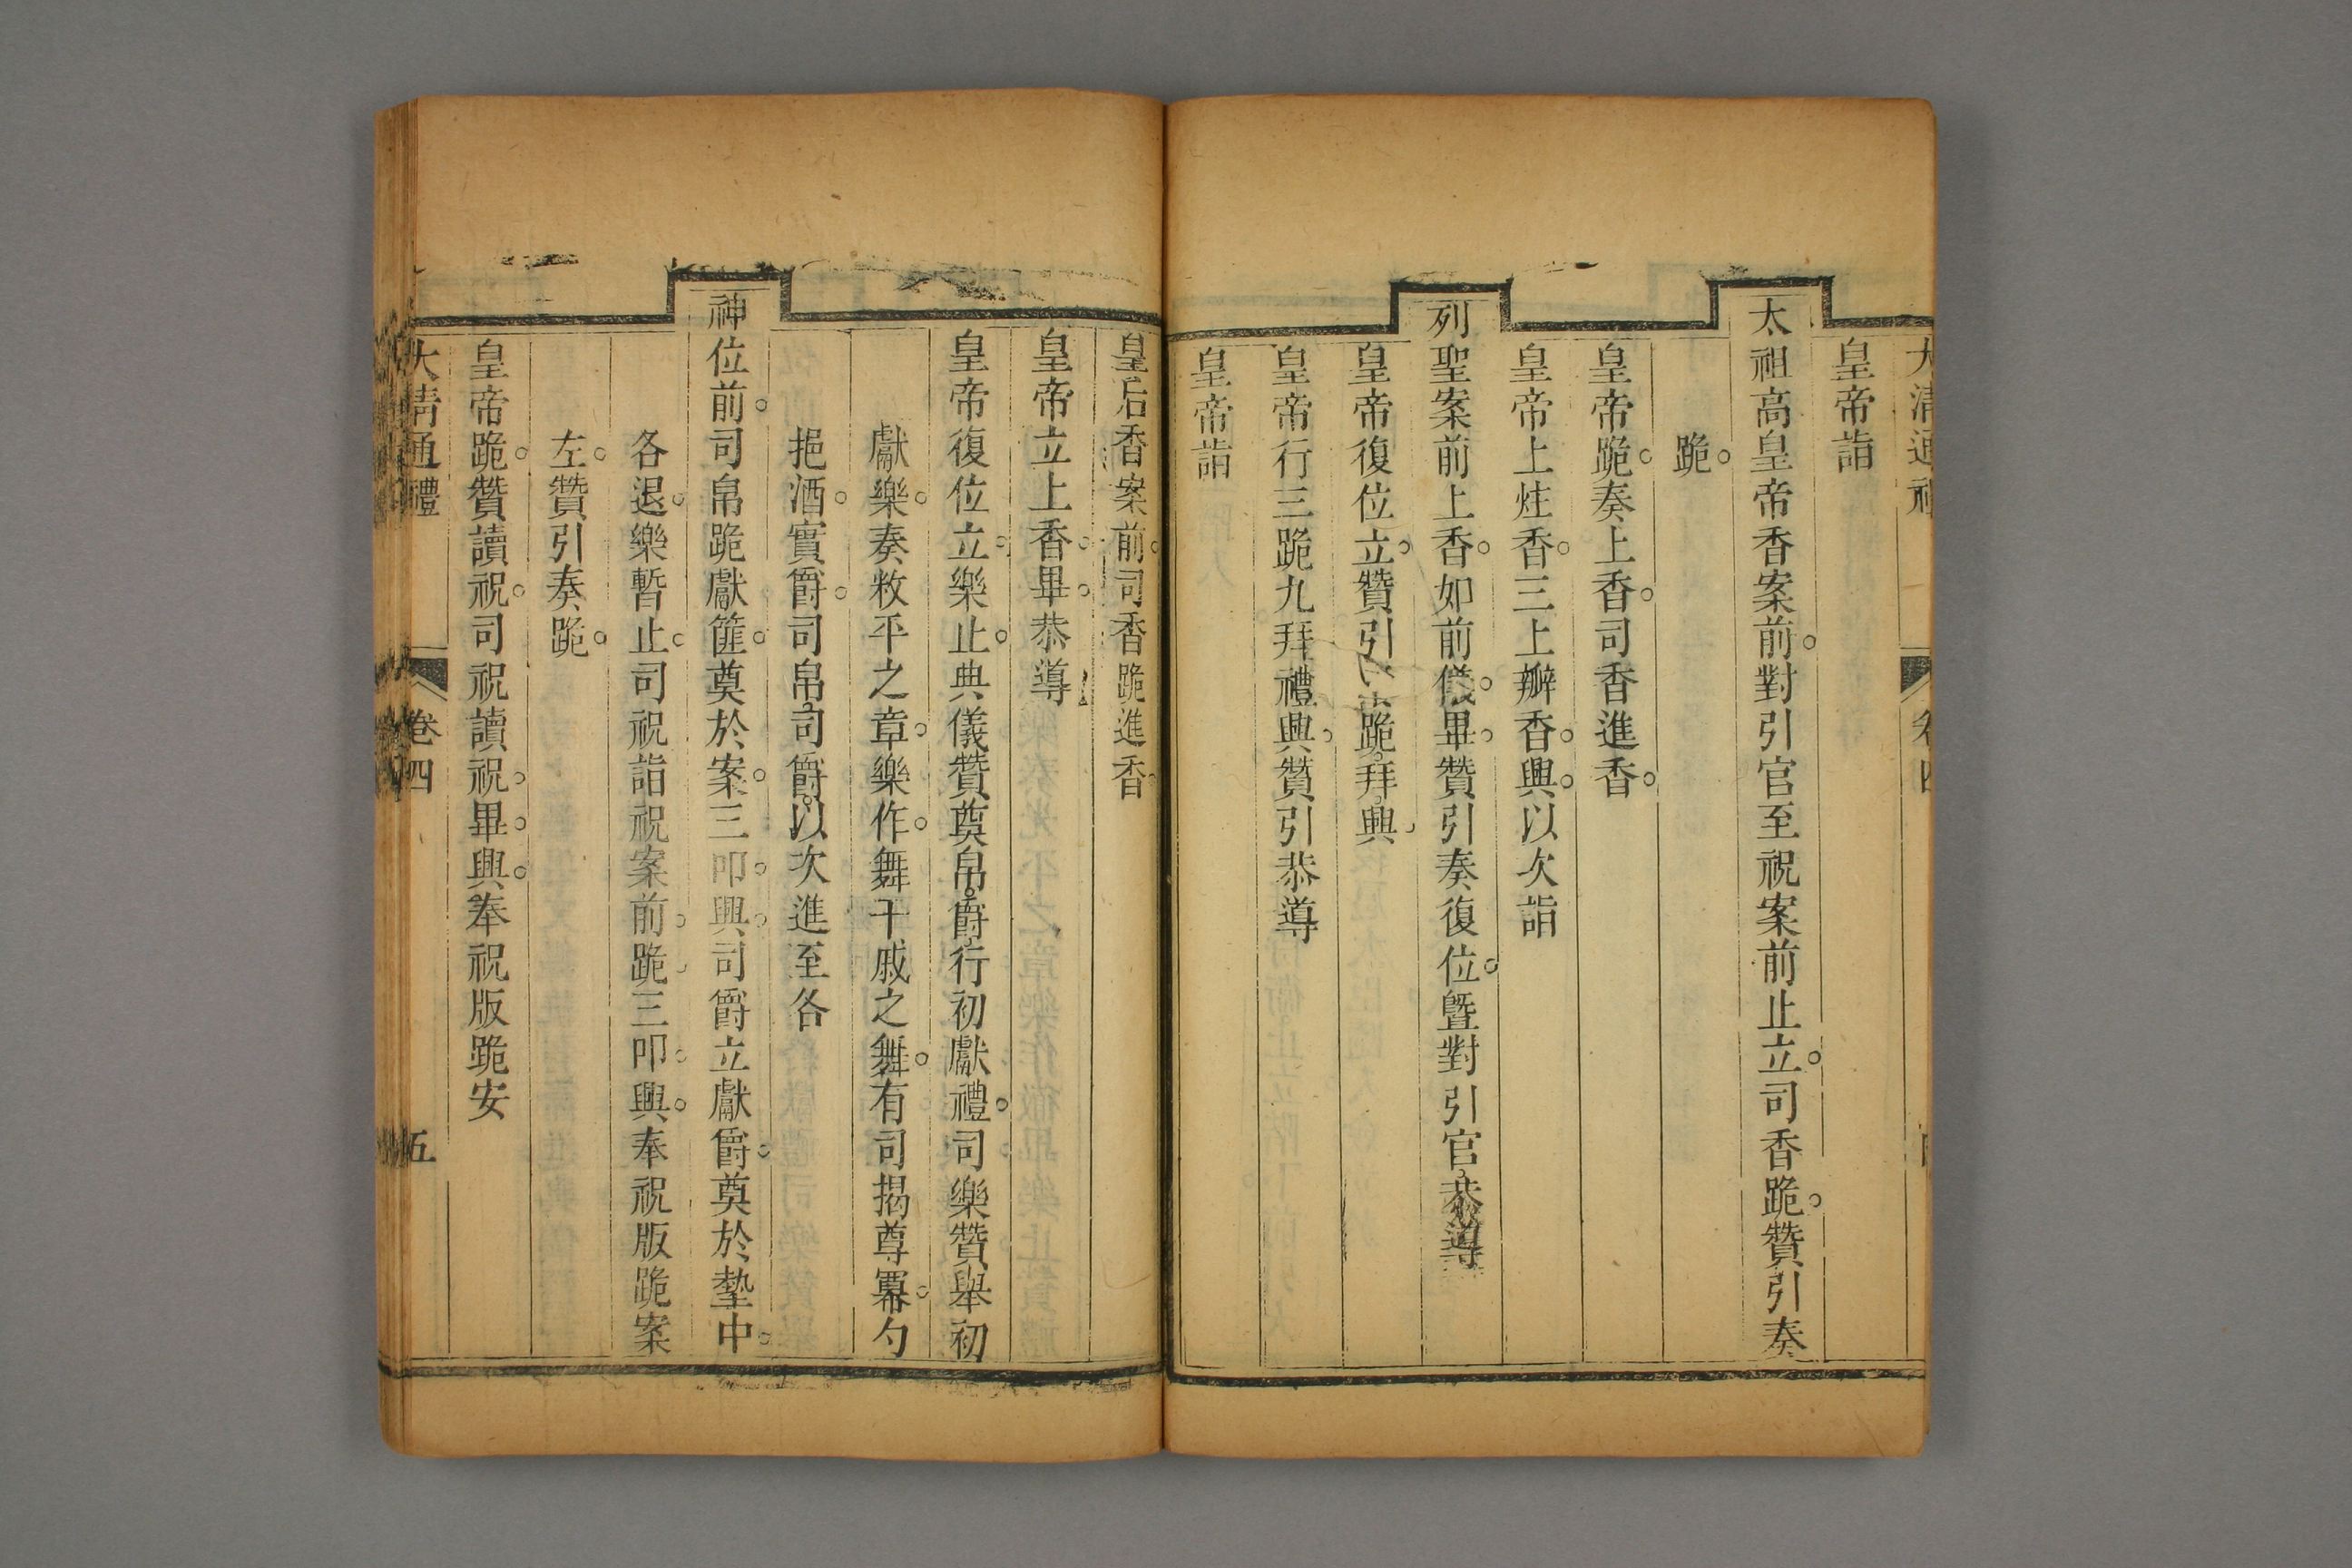 大清通禮
皇帝詣
太祖高皇帝香案前。對引官至祝案前止立。司香跪。贊引奏
跪。
皇帝跪。奏上香。司香進香。
皇帝上炷香。三上瓣香。興。以次詣
列聖案前上香。如前儀。畢。贊引奏復位。暨對引官。恭導
皇帝復位立。贊引跪。拜。興
皇帝行三跪九拜禮興。贊引恭導
皇帝詣
皇后香案前。司香跪進香。
皇帝立上香。畢。恭導
皇帝復位立。樂止。典儀贊奠帛。爵。行初獻禮。司樂贊舉初
獻樂。奏敉平之章。樂作。舞干戚之舞。有司揭尊冪。勺
挹酒。實爵。司帛。司爵。以次進至各
神位前。司帛跪獻篚。奠於案。三叩。興。司爵立獻爵。奠於墊中。
各退。樂暫止。司祝詣祝案前。跪。三叩。興。奉祝版跪案
左。贊引奏跪。
皇帝跪。贊讀祝。司祝讀祝。畢。興。奉祝版跪安
大清通禮 卷四 五